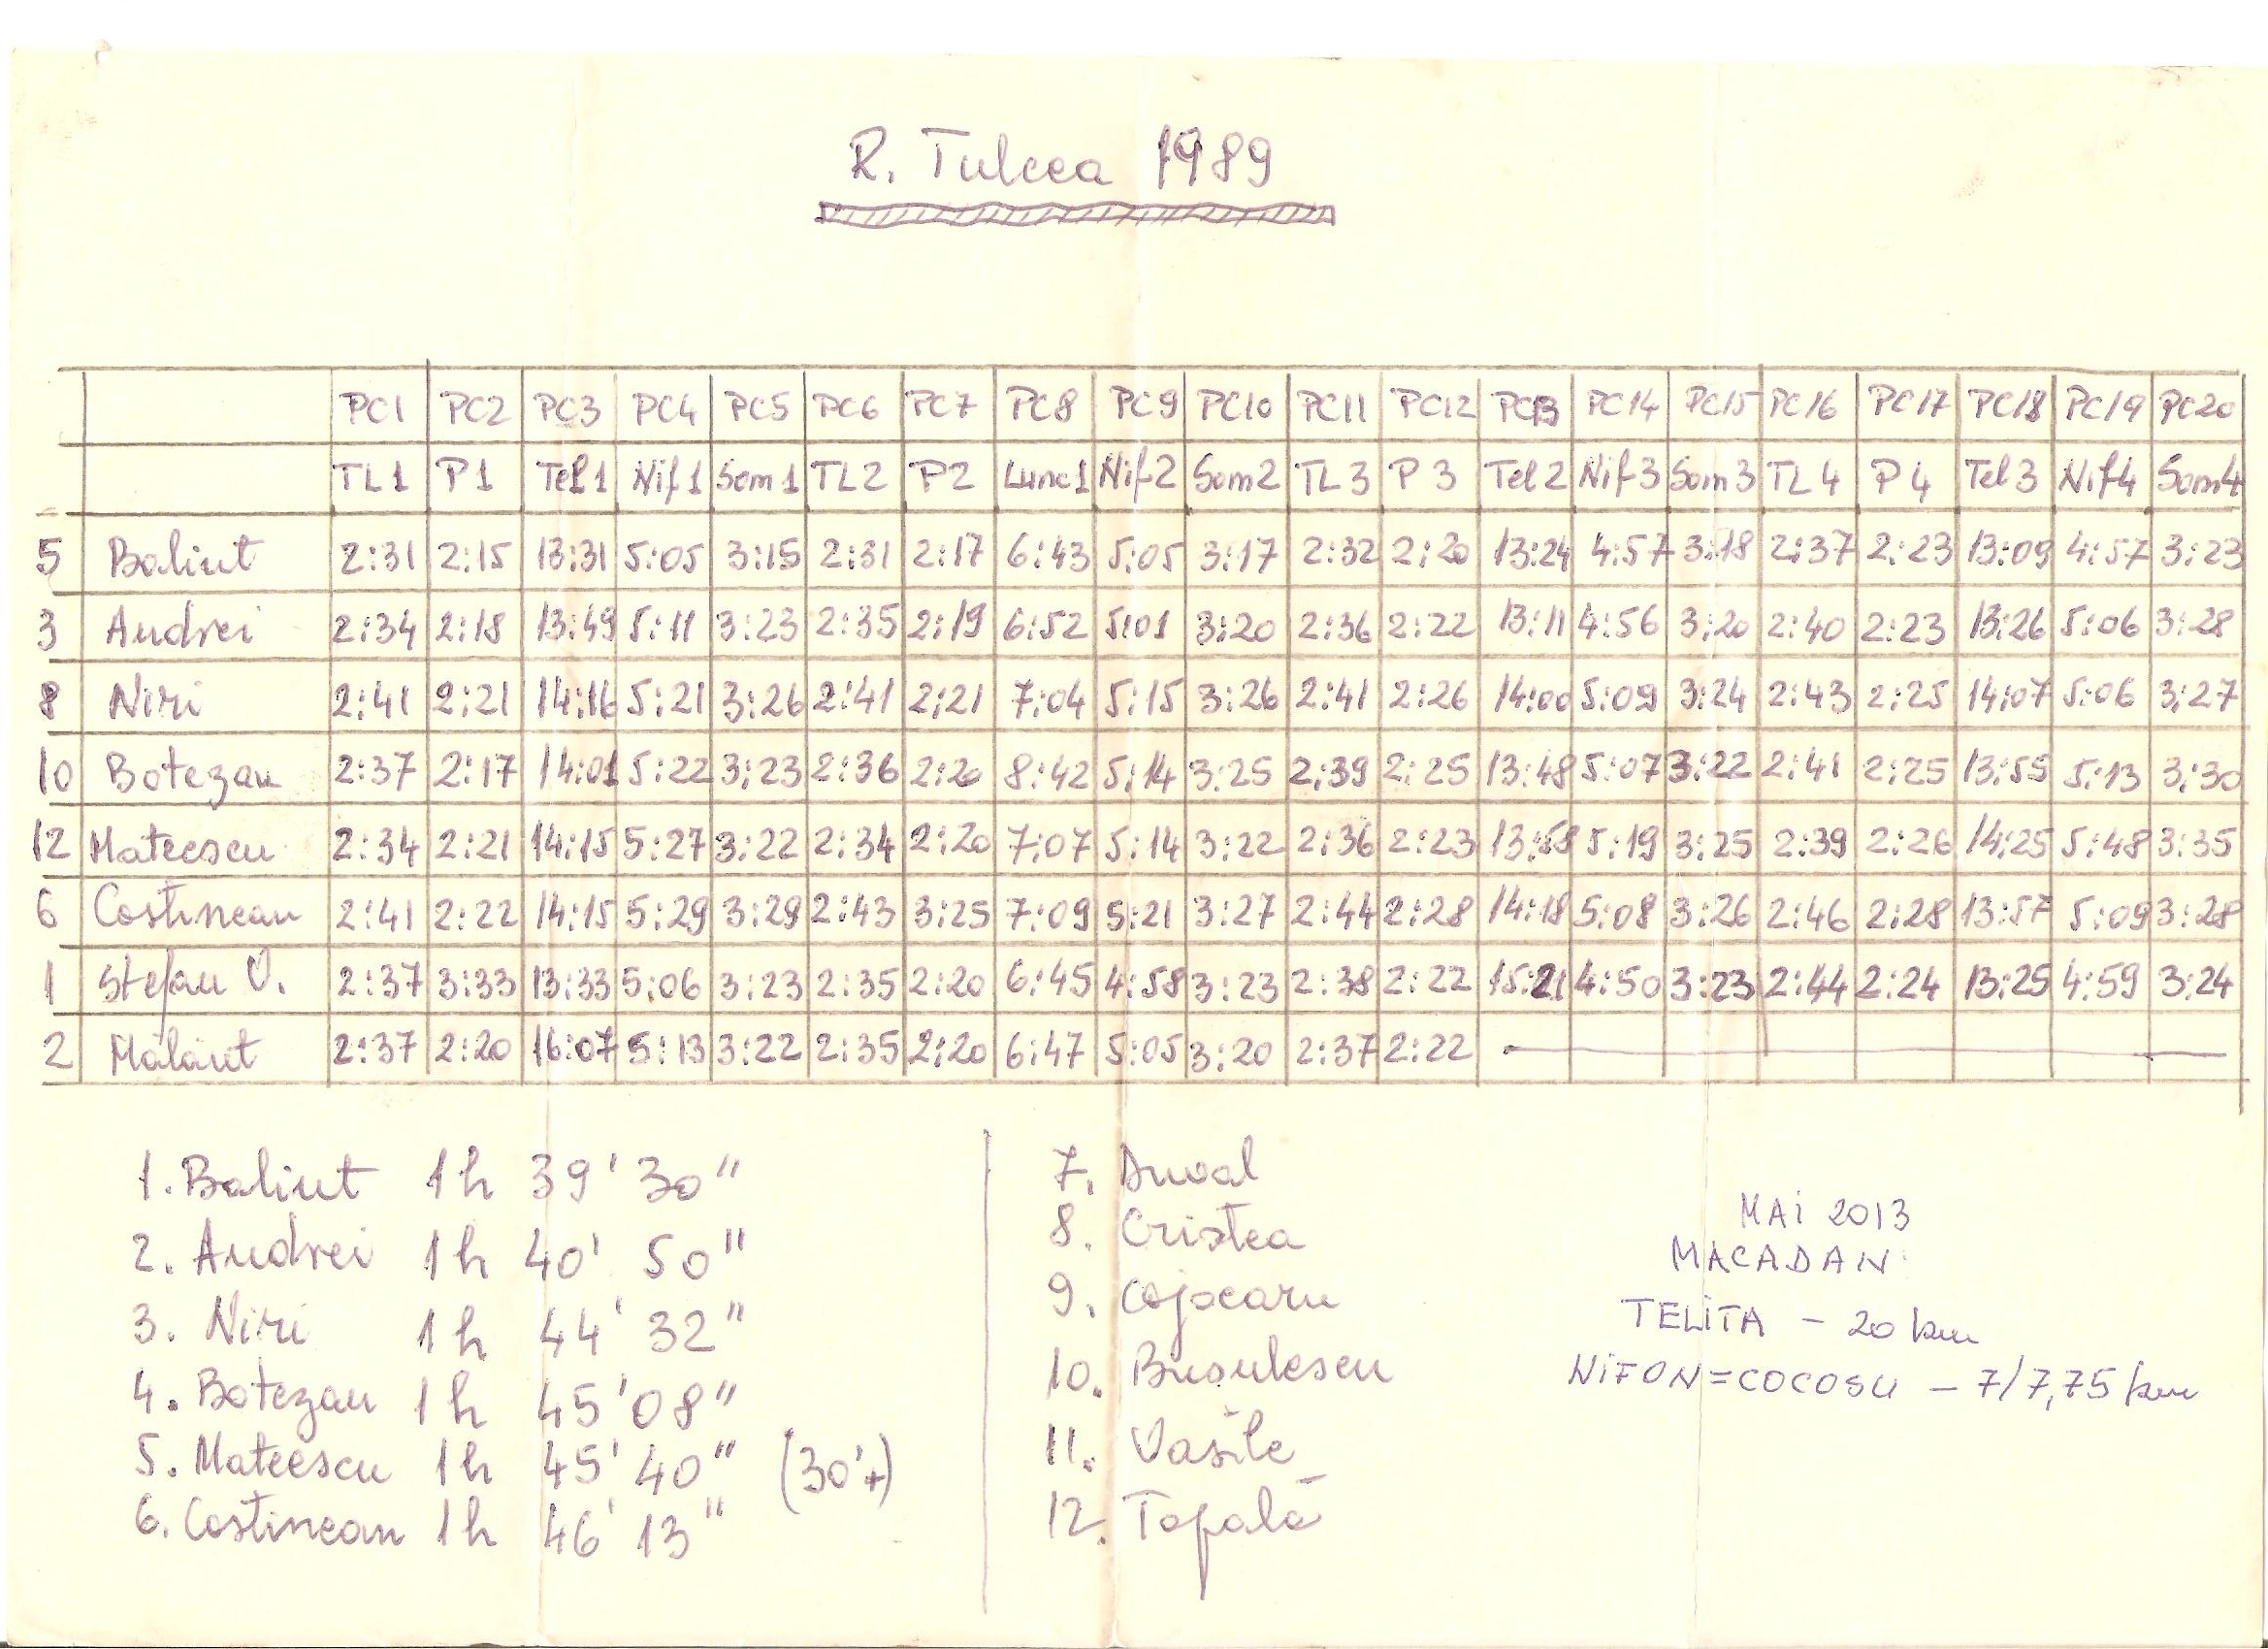 R. Tulcea 1989
PC1 PC2 PC3 PC4 PC5 PC6 PC7 PC8 PC9 PC10 PC11 PC12 PC13 PC14 PC15 PC16 PC17 PC18 PC19 PC20
TL1 P1 Tel1 Nif1 Som1 TL2 P2 Lunc1 Nif2 Som2 TL3 P3 Tel2 Nif3 Som3 TL4 P4 Tel3 Nif4 Som4
5 Balint 2:31 2:15 13:31 5:05 3:15 2:31 2:17 6:43 5:05 3:17 2:32 2:20 13:24 4:57 3:18 2:37 2:23 13:09 4:57 3:23
3 Andrei 2:34 2:18 13:49 5:11 3:23 2:35 2:19 6:52 5:01 3:20 2:36 2:22 13:11 4:56 3:20 2:40 2:23 13:26 5:06 3:28
8 Niri 2:41 2:21 14:16 5:21 3:26 2:41 2:21 7:04 5:15 3:26 2:41 2:26 14:00 5:09 3:24 2:43 2:25 14:07 5:06 3:27
10 Botezan 2:37 2:17 14:01 5:22 3:23 2:36 2:20 8:42 5:14 3:25 2:39 2:25 13:48 5:07 3:22 2:41 2:25 13:55 5:13 3:30
12 Mateescu 2:34 2:21 14:15 5:27 3:22 2:34 2:20 7:07 5:14 3:22 2:36 2:23 13:58 5:19 3:25 2:39 2:26 14:25 5:48 3:35
6 Costinean 2:41 2:22 14:15 5:29 3:29 2:43 3:25 7:09 5:21 3:27 2:44 2:28 14:18 5:08 3:26 2:46 2:28 13:57 5:09 3:28
1 Stefan V. 2:37 3:33 13:33 5:06 3:23 2:35 2:20 6:45 4:58 3:23 2:38 2:22 15:21 4:50 3:23 2:44 2:24 13:25 4:59 3:24
2 Mălăut 2:37 2:20 16:07 5:13 3:22 2:35 2:20 6:47 5:05 3:20 2:37 2:22
1. Balint 1h 39' 30"
2. Andrei 1h 40' 50"
3. Niri 1h 44' 32"
4. Botezan 1h 45' 08"
5. Mateescu 1h 45' 40" (30'+)
6. Costinean 1h 46' 13"
7. Duval
8. Cristea
9. Cojocaru
10. Busulescu
11. Vasile
12. Topală
MAI 2013
MACADAN
TELITA – 20 km
NIFON=COCOSU – 7/7,75 km